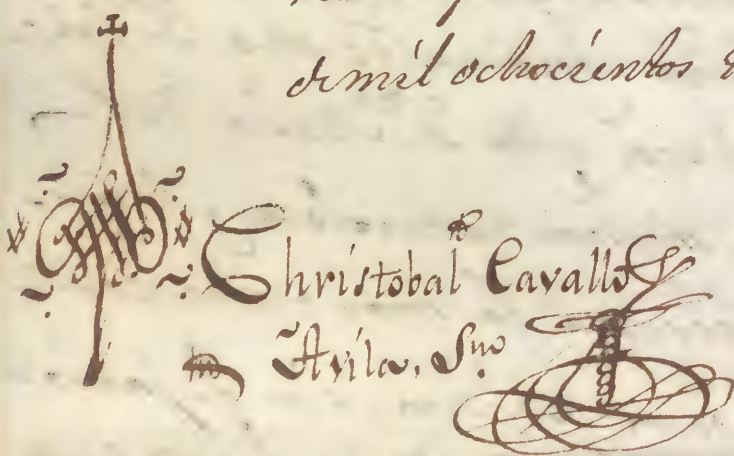 de mil ochocientos
Christobal Cavallo
Avila,